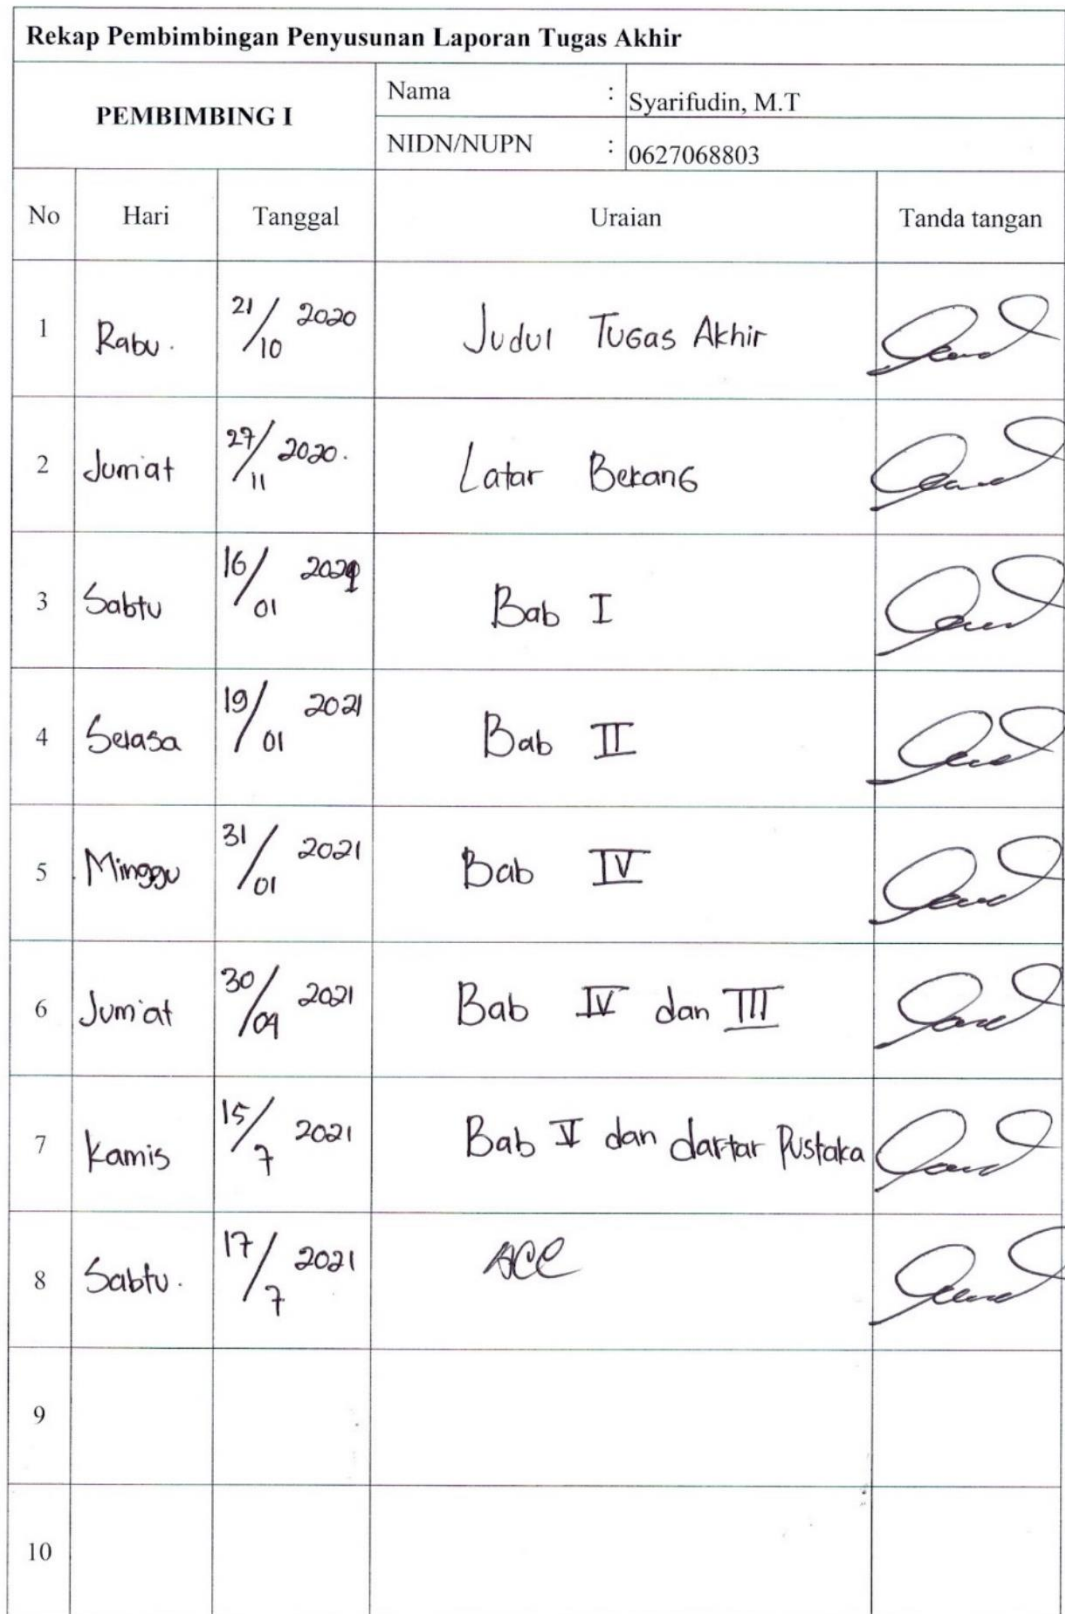 Rekap Pembimbingan Penyusunan Laporan Tugas Akhir
PEMBIMBING I
Nama : Syarifudin, M.T
NIDN/NUPN : 0627068803
No Hari Tanggal Uraian Tanda tangan
1 Rabu. 21/10 2020 Judul Tugas Akhir
2 Jum'at 27/11 2020. Latar Bekang
3 Sabtu 16/01 2021 Bab I
4 Selasa 19/01 2021 Bab II
5 Minggu 31/01 2021 Bab IV
6 Jum'at 30/04 2021 Bab IV dan III
7 Kamis 15/7 2021 Bab V dan daftar Pustaka
8 Sabtu. 17/7 2021 ACC
9
10